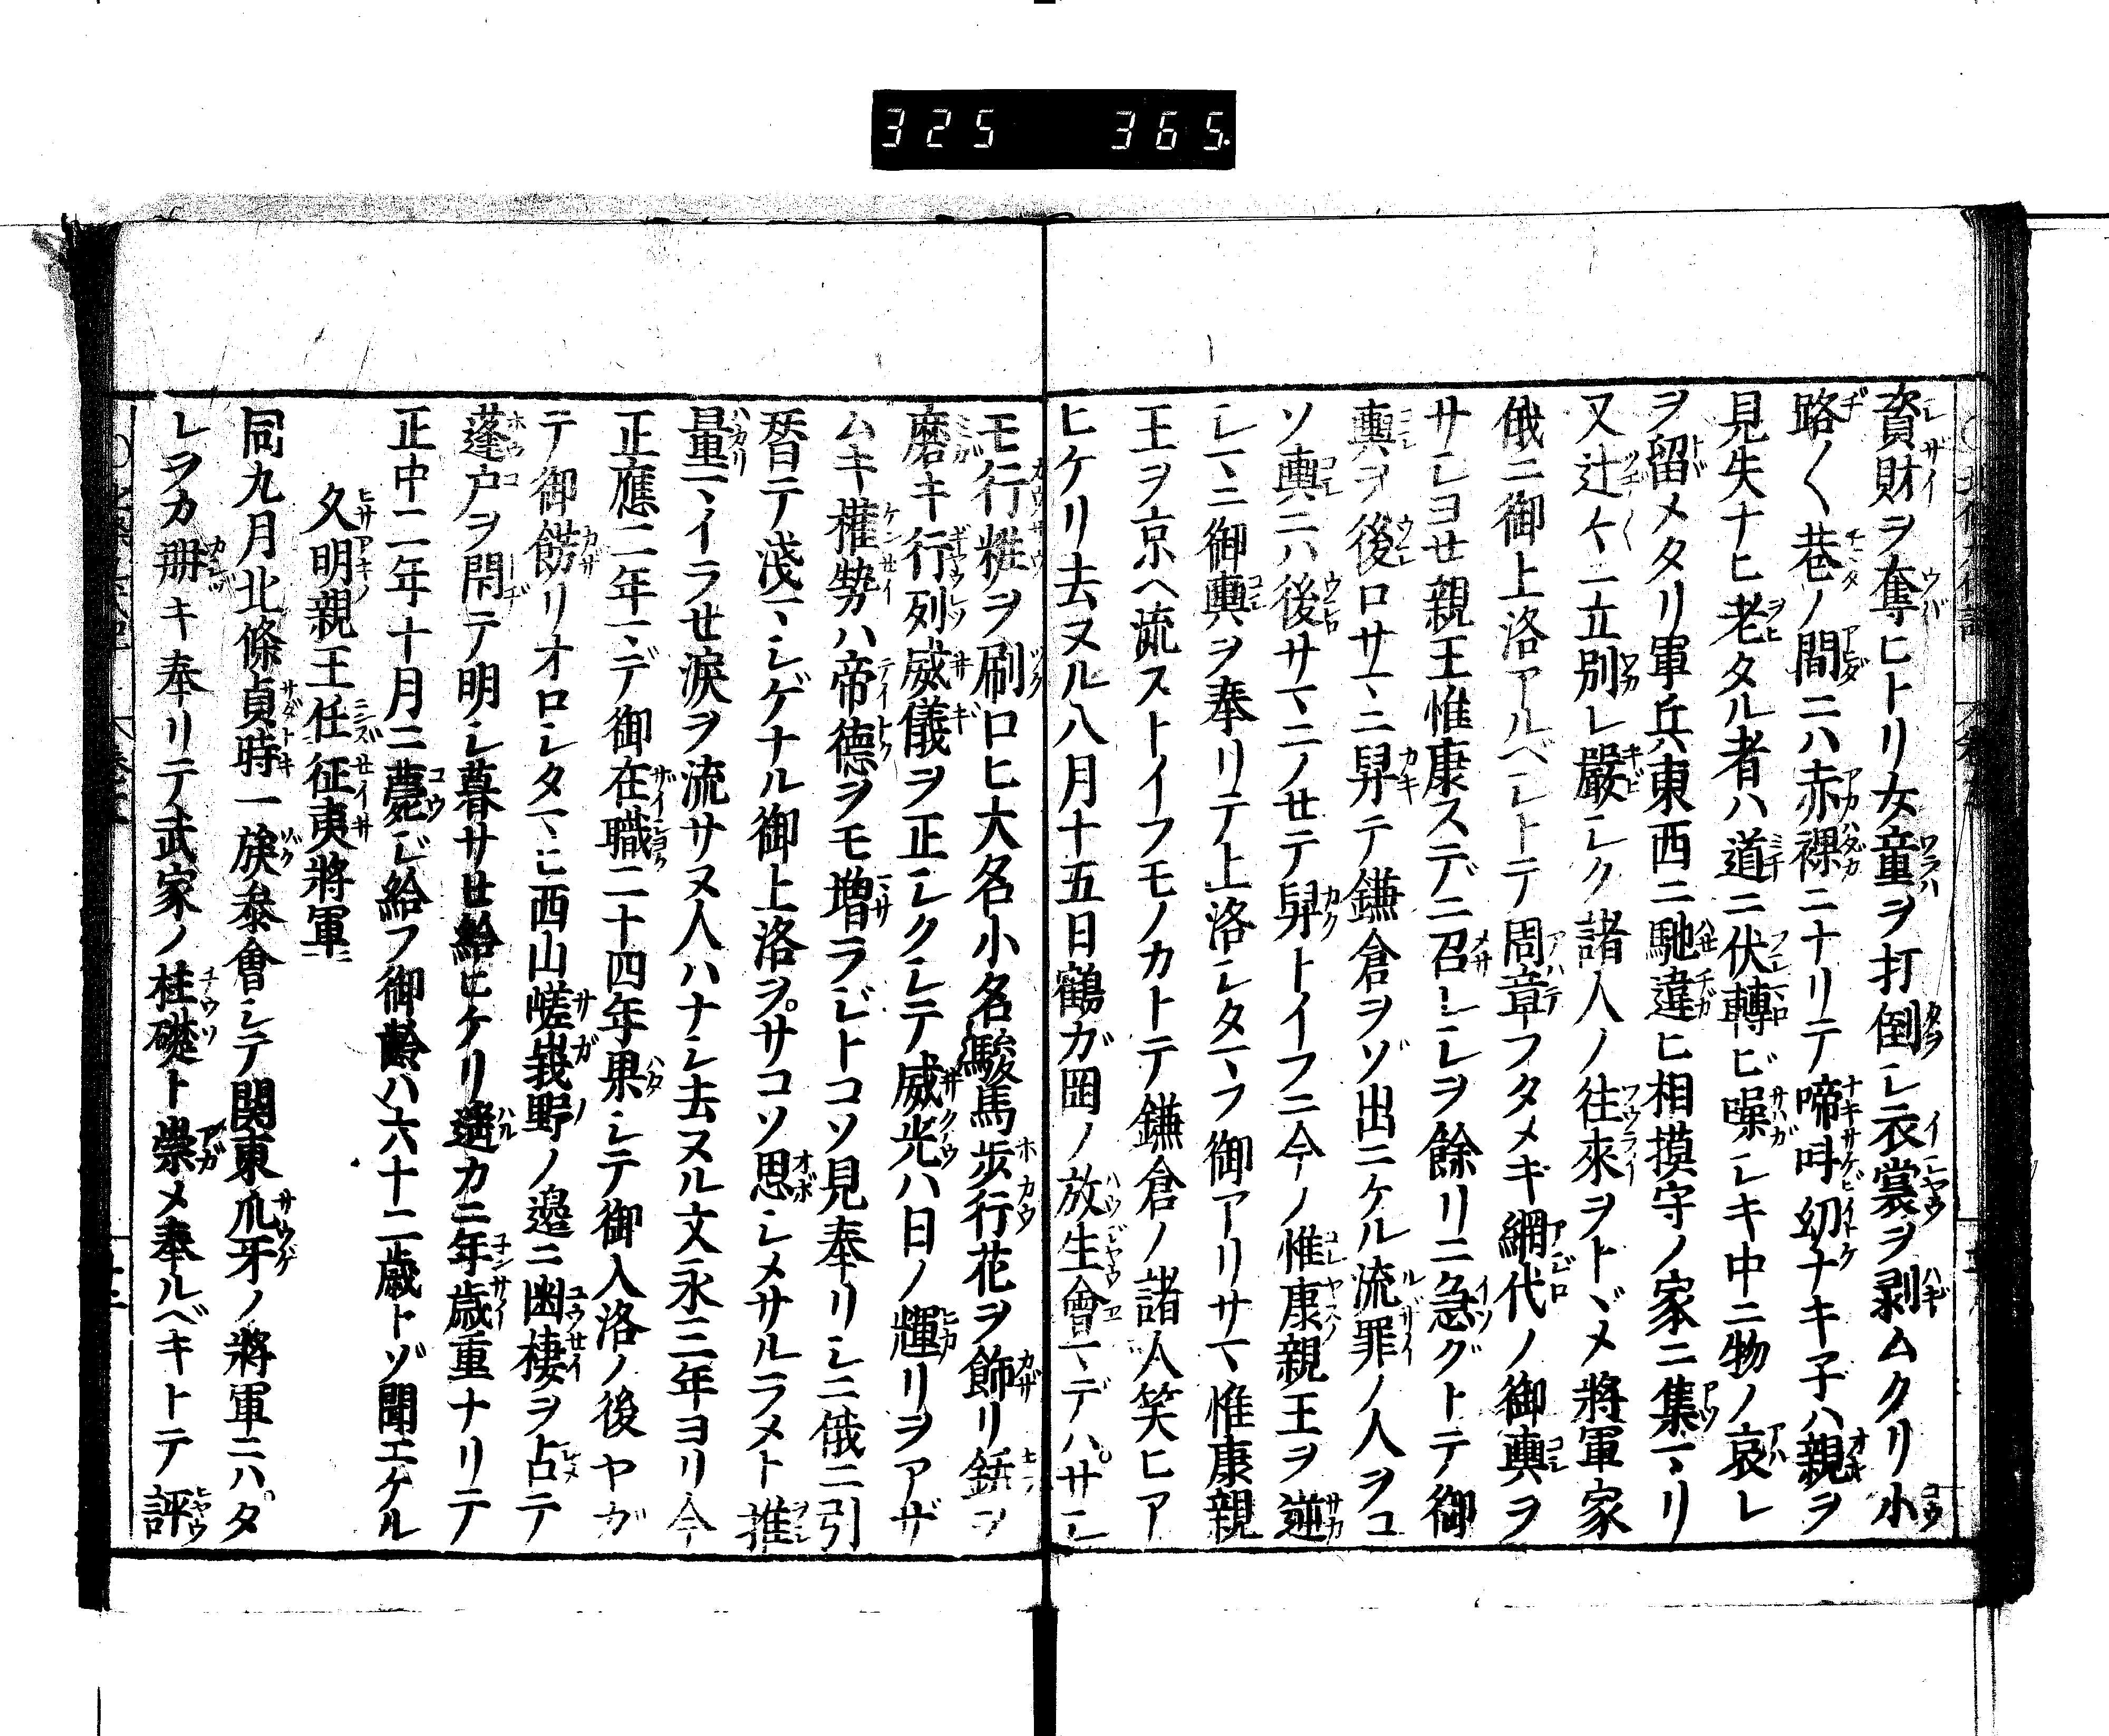 325 365
資財ヲ奪ヒトリ女童ヲ打倒シ衣裳ヲ剥ムクリ小
路〱巷ノ間ニハ赤裸ニナリテ啼呌幼ナキ子ハ親ヲ
見失ナヒ老タル者ハ道ニ伏轉ビ噪シキ中ニ物ノ哀レ
ヲ留メタリ軍兵東西ニ馳違ヒ相摸守ノ家ニ集マリ
又辻々ニ立別レ嚴シク諸人ノ往來ヲトヾメ將軍家
俄ニ御上洛アルベシトテ周章フタメキ網代ノ御輿ヲ
サシヨせ親王惟康スデニ召しシヲ餘リニ急グトテ御
輿ヲ後ロサマニ舁テ鎌倉ヲゾ出ニケル流罪ノ人ヲコ
ソ輿ニハ後サマニノせテ舁トイフニ今ノ惟康親王ヲ逆
シマニ御輿ヲ奉リテ上洛シタマフ御アリサマ惟康親
王ヲ京ヘ流ストイフモノカトテ鎌倉ノ諸人笑ヒア
ヒケリ去ヌル八月十五日鶴ガ岡ノ放生會マデハサシ
モ行粧ヲ刷ロヒ大名小名駿馬歩行花ヲ飾リ錺ヲ
磨キ行列威儀ヲ正シクシテ威光ハ日ノ輝リヲアザ
ムキ權勢ハ帝德ヲモ増ラジトコソ見奉リシニ俄ニ引
替テ淺マシゲナル御上洛ヲサコソ思シメサルラメト推
量マイラせ淚ヲ流サヌ人ハナシ去ヌル文永三年ヨリ今
正應二年マデ御在職二十四年果シテ御入洛ノ後ヤガ
テ御餝リオロシタマヒ西山嵯峩野ノ邉ニ幽棲ヲ占テ
蓬户ヲ閇テ明シ暮サせ給ヒケリ遙カニ年歳重ナリテ
正中二年十月ニ薨ジ給フ御齡ハ六十二歳トゾ聞エケル
久明親王任征夷將軍
同九月北條貞時一族叅會シテ関東爪牙ノ將軍ニハタ
レヲカ册キ奉リテ武家ノ柱礎ト崇メ奉ルベキトテ評